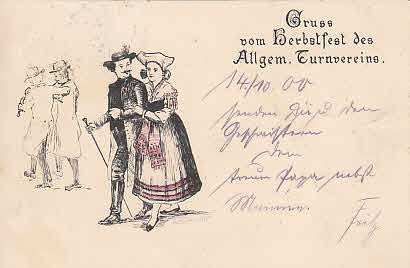 Gruss
vom Herbstfest des
Allgem. Turnvereins.
14/10.00
senden Dir u den
Geschwistern
dein
treuer Papa nebst
Mamma.
Fritz